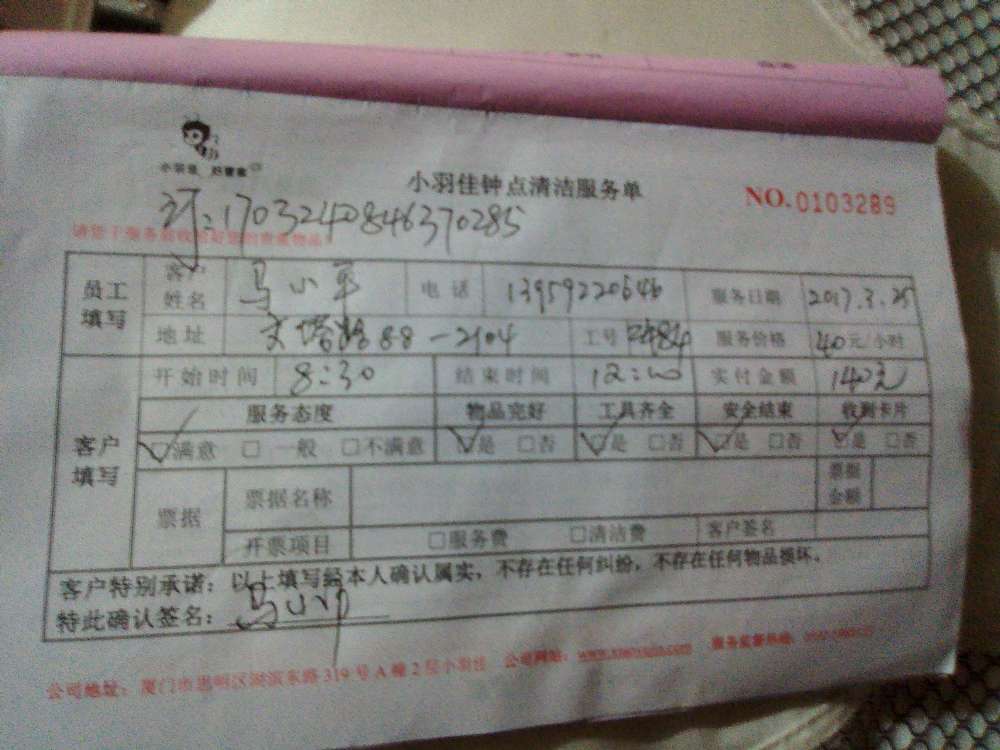 小羽佳 好管家
小羽佳钟点清洁服务单
NO. 0103289
订:1703240846370285
员工填写 客户姓名 马小军 电话 13959220646 服务日期 2017.3.25
地址 88-2104 工号 服务价格 40元/小时
客户填写 开始时间 8:30 结束时间 12:00 实付金额 140元
服务态度 物品完好 工具齐全 安全结束 收到卡片
☑满意 □一般 □不满意 ☑是 □否 ☑是 □否 ☑是 □否 ☑是 □否
票据 票据名称 票据金额
开票项目 □服务费 □清洁费 客户签名
客户特别承诺:以上填写经本人确认属实,不存在任何纠纷,不存在任何物品损坏。
特此确认签名: 马小
公司地址:厦门市思明区湖滨东路319号A幢2层小羽佳 公司网站: 服务监督热线: